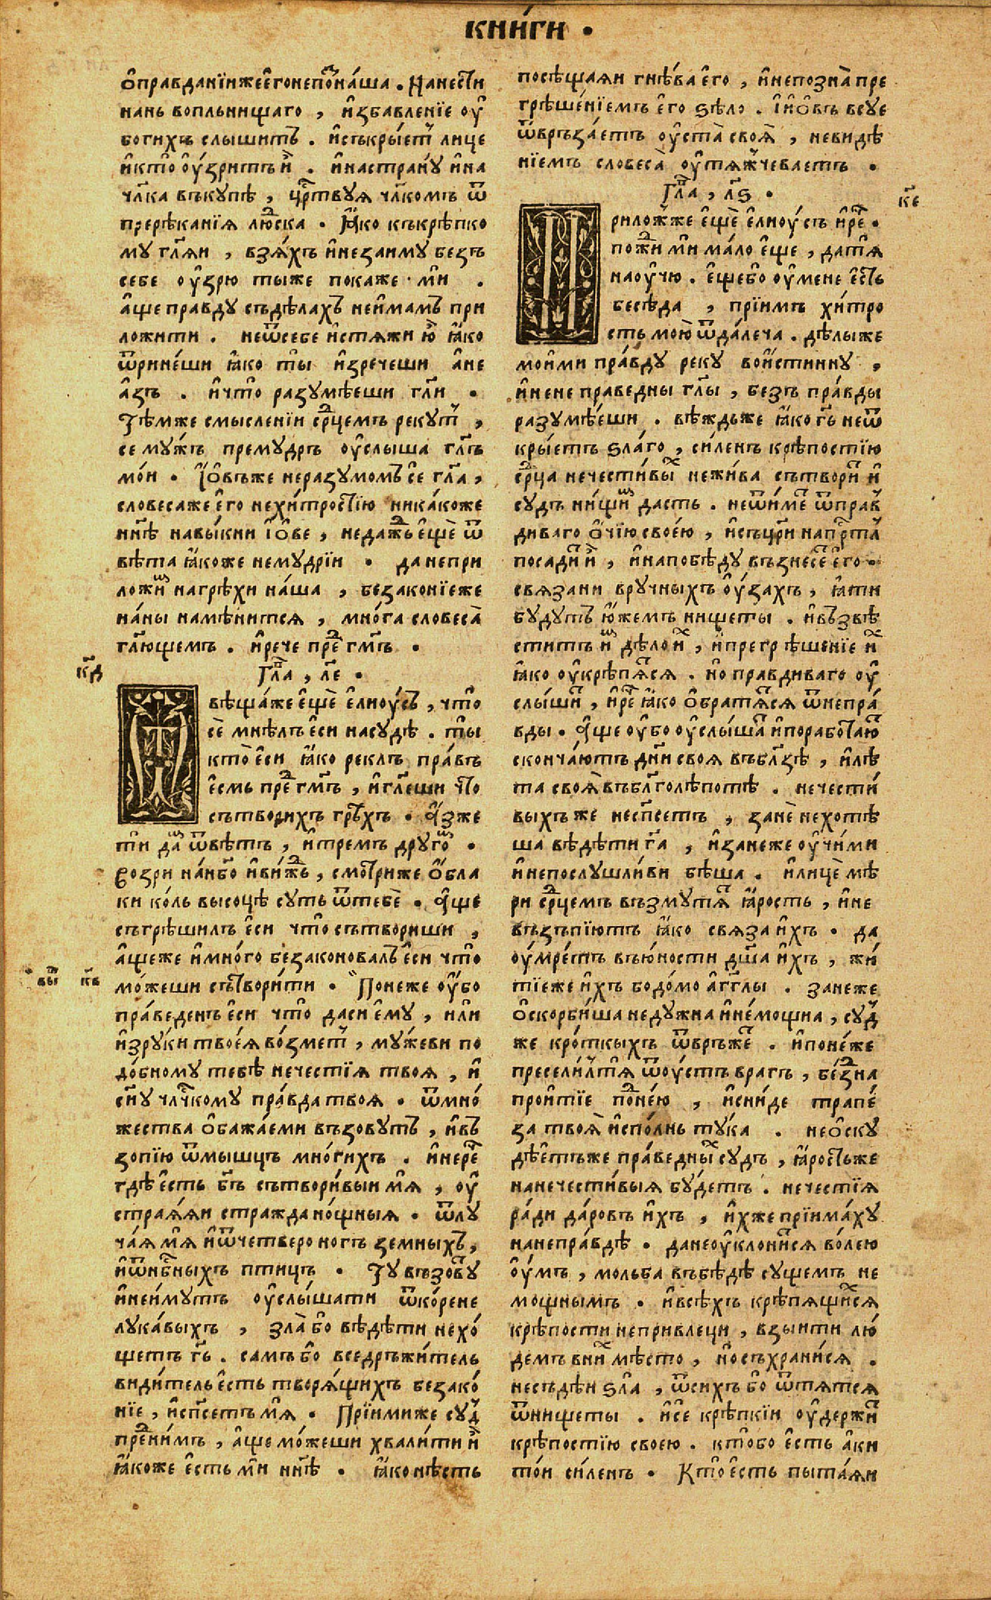 книги .
ѻ҆правданїиже є҆гоне по́наша . Нанести
нань вопль нищаго , и҆збавленїе оу҆
богихъ слышитъ . и҆съкрыетъ лице
и҆кто оу҆зритъ и҆ . и҆настрану и҆на
чл҃ка въкупѣ , црⷭ҇твуѧ чл҃комъ ѿ
пререканїѧ людска . Ꙗко къкрѣпко
му гл҃ѧи , взѧхъ и҆незаиму безъ
себе оу҆зрю тыже покаже ми .
а҆ще правду съдѣлахъ не и҆мамъ при
ложити . неѿсебе и҆стѧжи ю҆ ꙗко
ѿринеши ꙗко ты и҆зречеши а҆не
а҆зъ . и҆что разумѣеши гл҃и .
Тѣмже смысленїи срⷣцемъ рекутъ ,
се мужъ премудръ оу҆слыша гл҃ъ
мои . І҆ѻвъже неразумомъ се гл҃а ,
словесаже є҆го нехитростїю никакоже
нн҃ѣ навыкни і҆ѻве , недажь є҆ще ѿ
вѣта ꙗкоже немудрїи . данепри
ложиⷨ нагрѣхи наша , безаконїеже
наны намѣнитсѧ , многа словеса
гл҃ющемъ . и҆рече преⷣ гм҃ъ .
Гл҃а , л҃е .
к҃д
Ѿвѣщаже є҆ще є҆лиоусъ , что
се мнѣлъ є҆си насудѣ . ты
кто є҆си ꙗко реклъ правъ
є҆смь преⷣ гм҃ъ , и҆гл҃еши что
сътворихъ грѣхъ . А҆зже
ти даⷨ ѿвѣтъ , и҆тремъ другоⷨ .
Возри нанебо и҆вижь , смотриже ѻ҆бла
ки коль высоцѣ суть ѿтебѐ . А҆ще
съгрѣшилъ є҆си что сътвориши ,
а҆щеже и҆много безаконовалъ є҆си что
вы к҃в
можеши сътворити . Понеже оу҆бо
праведенъ є҆си что даси є҆му , и҆ли
и҆зруки твоеѧ возметъ , мужеви по
добному тебѣ нечестїѧ твоѧ , и҆
сн҃у члч҃кому правда твоѧ . ѿмно
жества ѻ҆бажаеми възовутъ , и҆въ
зопїю ѿмышцъ многихъ . и҆нерече
гдѣ є҆сть бг҃ъ сътворивыи мѧ , оу҆
страѧѧи стражда нощныѧ . ѿлу
чаѧ мѧ и҆ѿчетвероногъ земныхъ ,
и҆ѿнбⷭ҇ныхъ птицъ . Ту възовꙋ
и҆неимутъ оу҆слышати ѿкорене
лукавыхъ , зла бо вѣдѣти нехо
щетъ г҃ь . самъ бо вседръжитель
видитель є҆сть творѧщихъ безако
нїе , и҆спⷭ҇сетъ мѧ . Прїимиже суⷣ
преⷣнимъ , а҆ще можеши хвалити и҆
ꙗкоже є҆сть ми нн҃ѣ . ꙗконѣсть
посѣщаѧи гнѣва є҆го , и҆непозна пре
грѣшенїемъ є҆го ѕѣло . І҆ѻвъ всуе
ѿвръзаетъ оу҆ста своѧ , невидѣ
нїемъ словеса оу҆тѧжчеваетъ .
Гл҃а , л҃ѕ .
к҃е
Приложже є҆ще є҆лиоусъ и҆рече .
пожи ми мало є҆ще , датѧ
научю . є҆щебо оу҆мене є҆сть
бесѣда , прїимъ хитро
сть мою ѿдалеча . дѣлыже
моими правду реку воистинну ,
и҆нене праведны гл҃ы , безъ правды
разумѣеши . вѣждьже ꙗко г҃ь неѿ
крыетъ ѕлаго , силенъ крѣпостїю
срⷣца нечестивыⷯ нежива сътвориⷮ и҆
судъ нищиⷨ дасть . неѿиметъ ѿправ
диваго ѻ҆чїю своею , и҆съцр҃и напрⷭ҇тлѣ
посадиⷮ и҆ , и҆напобѣду възнесе є҆го .
свѧзани вручныхъ оу҆захъ , ꙗти
будутъ ю҆жемъ нищеты . и҆възвѣ
ститъ и҆ⷨ дѣло и҆ⷯ , и҆прегрѣшенїе и҆ⷯ
ꙗко оу҆крѣпѧтсѧ . но праведиваго оу҆
слышиⷮ , и҆рече ꙗко ѻ҆братѧтсѧ ѿнепра
вды . А҆ще оу҆бо оу҆слышаⷮ и҆поработаю
скончаютъ дн҃и своѧ въблазѣ , и҆лѣ
та своѧ въблголѣпотѣ . нечести
выхъже неспⷭ҇сетъ , зане нехотѣ
ша вѣдѣти г҃а , и҆занеже оу҆чими
и҆непослушливи бѣша . и҆лицемѣ
ри срⷣцемъ възмутѧⷮ ꙗрость , и҆не
възъпїютъ ꙗко свѧза и҆хъ . да
оу҆мретъ въюности дш҃а и҆хъ , жи
тїеже и҆хъ бодомо а҆гг҃лы . занеже
ѻ҆скорбиша недужна и҆немощна , суⷣ
же кроткыхъ ѿвръжеⷮ . и҆понеже
преселил тѧ ѿоустъ врагъ , безⷣна
пролитїе поⷣнею , и҆сниде трапе
за твоѧ и҆сполнь тука . неѻ҆ску
дѣетъже праведныⷯ судъ , ꙗростьже
нанечестивыѧ будетъ . нечестїѧ
ради даровъ и҆хъ , и҆хже прїимаху
нанеправдѣ . данеоуклонитсѧ волею
оу҆мъ , мольба въбѣдѣ сущемъ не
мощнымъ . и҆всѣхъ крѣпѧщиⷯсѧ
крѣпости непривлеци , взыити лю
демъ вниⷯ мѣсто , носъхранисѧ .
несъдѣи ѕла , ѿсихъ бо ѿтѧтсѧ
ѿнищеты . и҆се крѣпкїи оу҆держиⷮ
крѣпостїю своею . ктобо є҆сть а҆ки
тои силенъ . Кто є҆сть пытаѧи